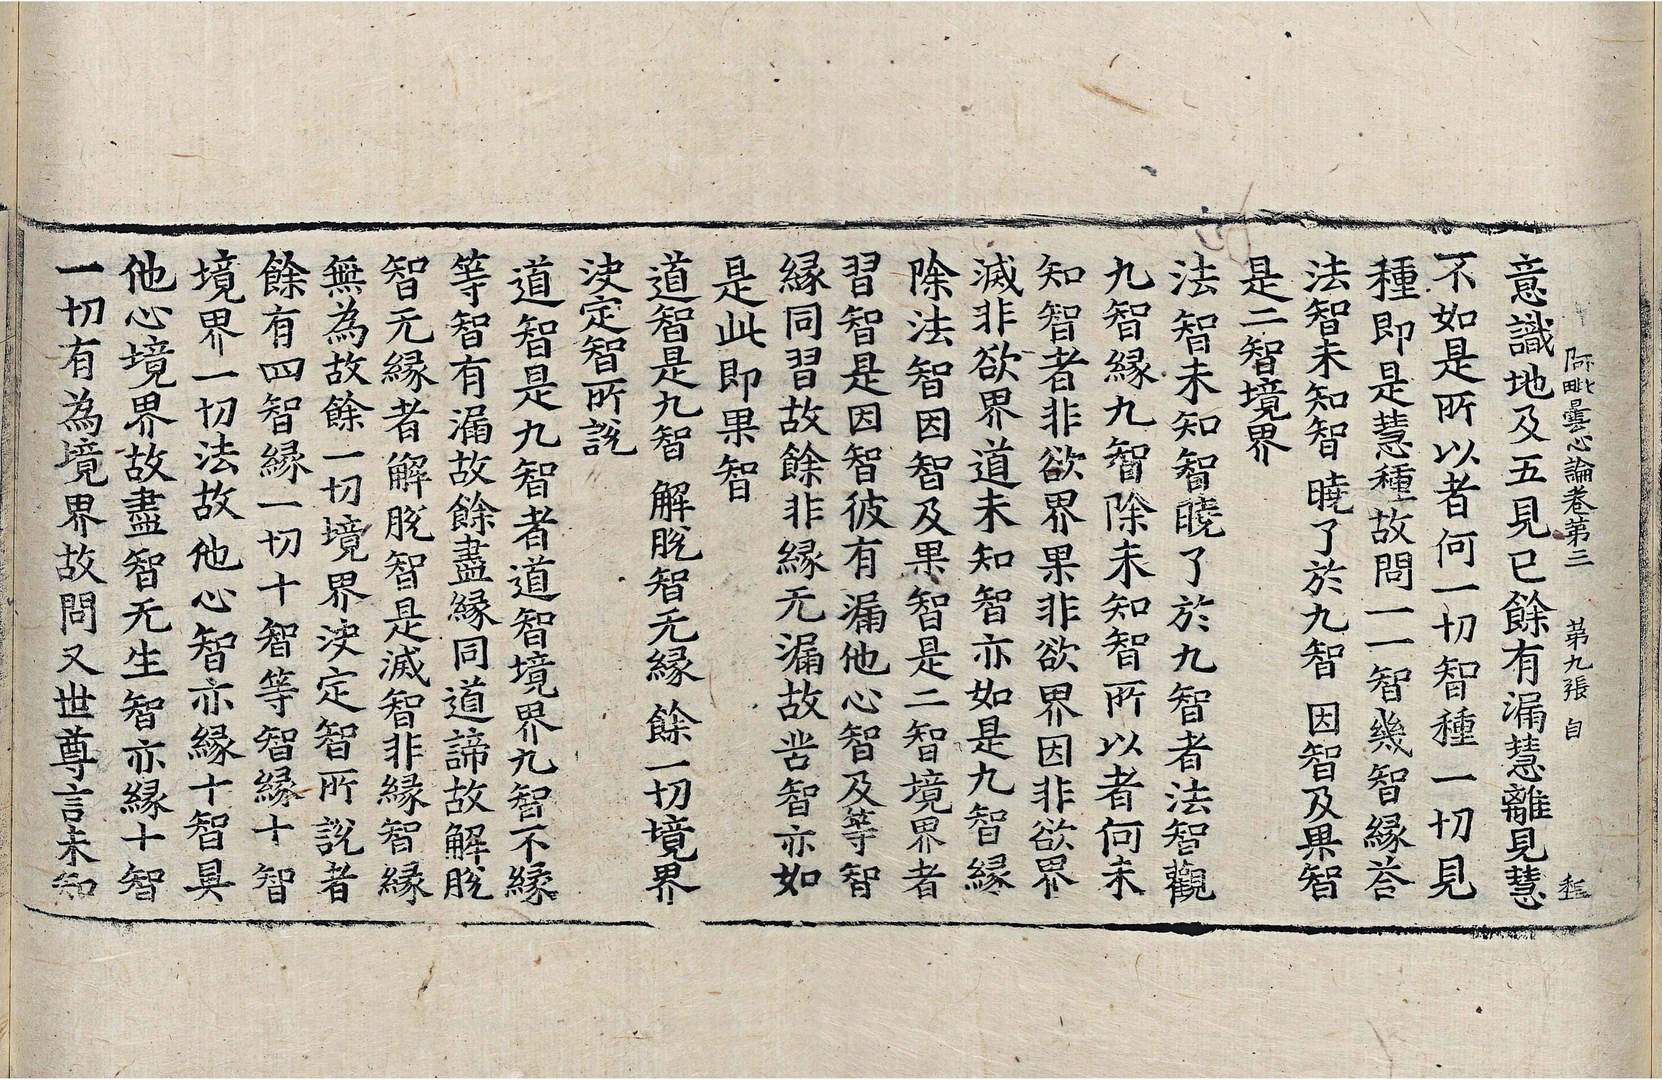 阿毗曇心論卷第三　第九張　自
意識地及五見已餘有漏慧離見慧
不如是所以者何一切智種一切見
種即是慧種故問一一智幾智緣荅
法智未知智　曉了於九智　因智及果智
是二智境界
法智未知智曉了於九智者法智觀
九智緣九智除未知智所以者何未
知智者非欲界果非欲界因非欲界
滅非欲界道未知智亦如是九智緣
除法智因智及果智是二智境界者
習智是因智彼有漏他心智及等智
緣同習故餘非緣无漏故苦智亦如
是此即果智
道智是九智　解脫智无緣　餘一切境界
決定智所說
道智是九智者道智境界九智不緣
等智有漏故餘盡緣同道諦故解脫
智无緣者解脫智是滅智非緣智緣
無為故餘一切境界決定智所說者
餘有四智緣一切十智等智緣十智
境界一切法故他心智亦緣十智具
他心境界故盡智无生智亦緣十智
一切有為境界故問又世尊言未知